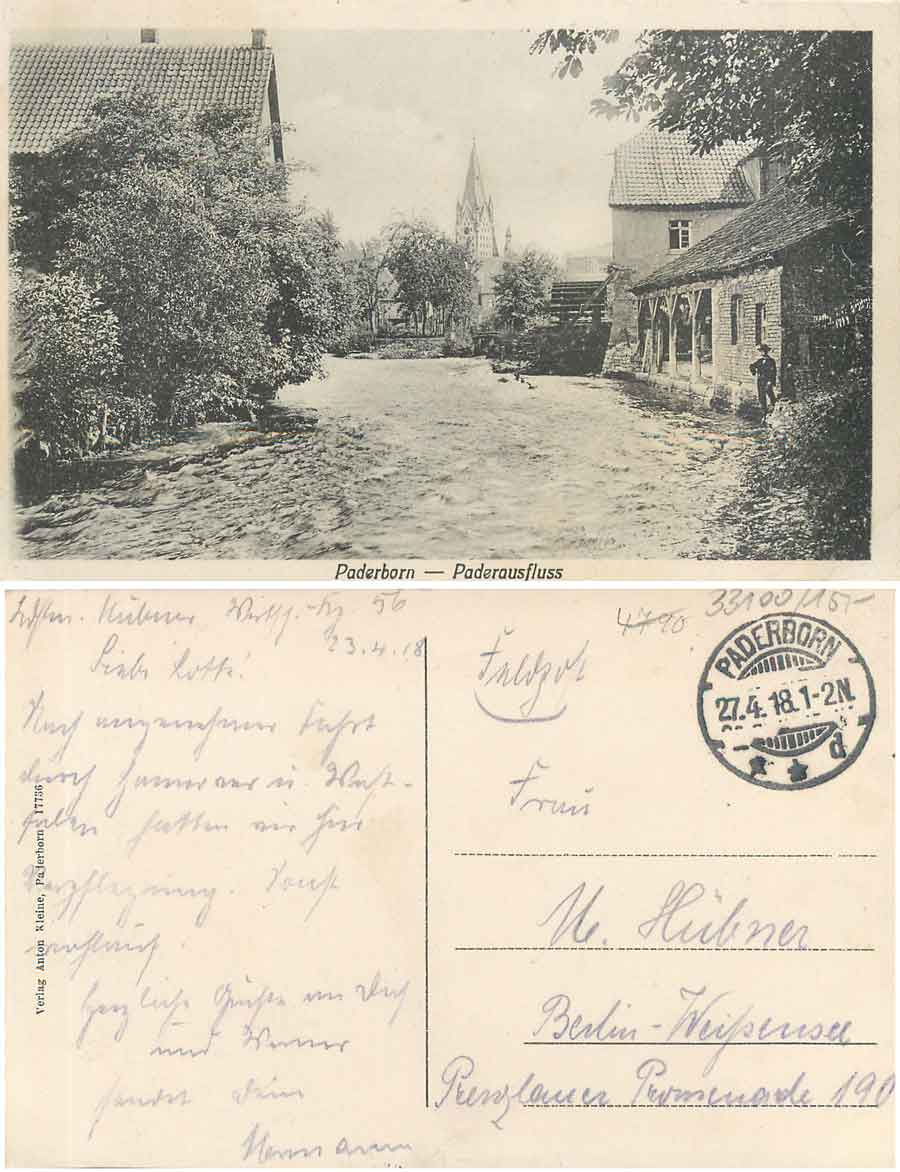 Paderborn — Paderausfluss
Ldstm. Hübner Wirtsch.-Kp. 56
23.4.18
Liebe Lotte!
Nach angenehmer Fahrt
durch Hannover u. West-
falen hatten wir hier
Verpflegung. Sonst
wohlauf.
Herzliche Grüße an Dich
und Werner
sendet Dein
Hermann
Verlag Anton Kleine, Paderborn 17736
4790
33100/15,-
PADERBORN
27.4.18.1-2N.
d
Feldpost
Frau
M. Hübner
Berlin-Weißensee
Prenzlauer Promenade 190